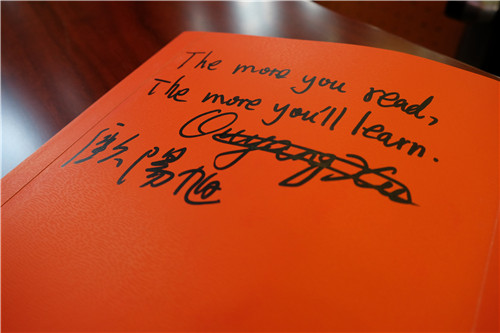 The more you read,
The more you'll learn.
Ouyang Xu
欧陽旭